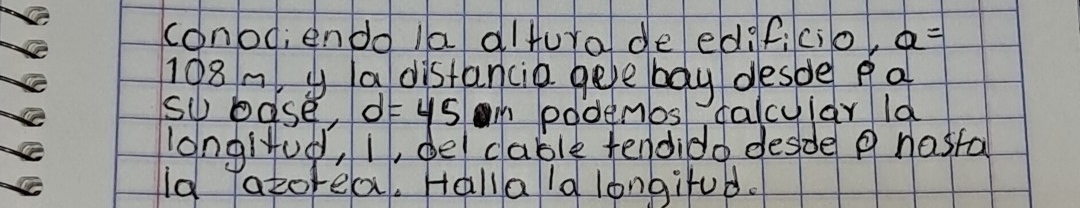 conociendo la altura de edificio, a=
108 m, y la distancia que hay desde P a
su base, d= 45 m podemos calcular la
longitud, l, del cable tendido desde P hasta
la azotea. Halla la longitud.